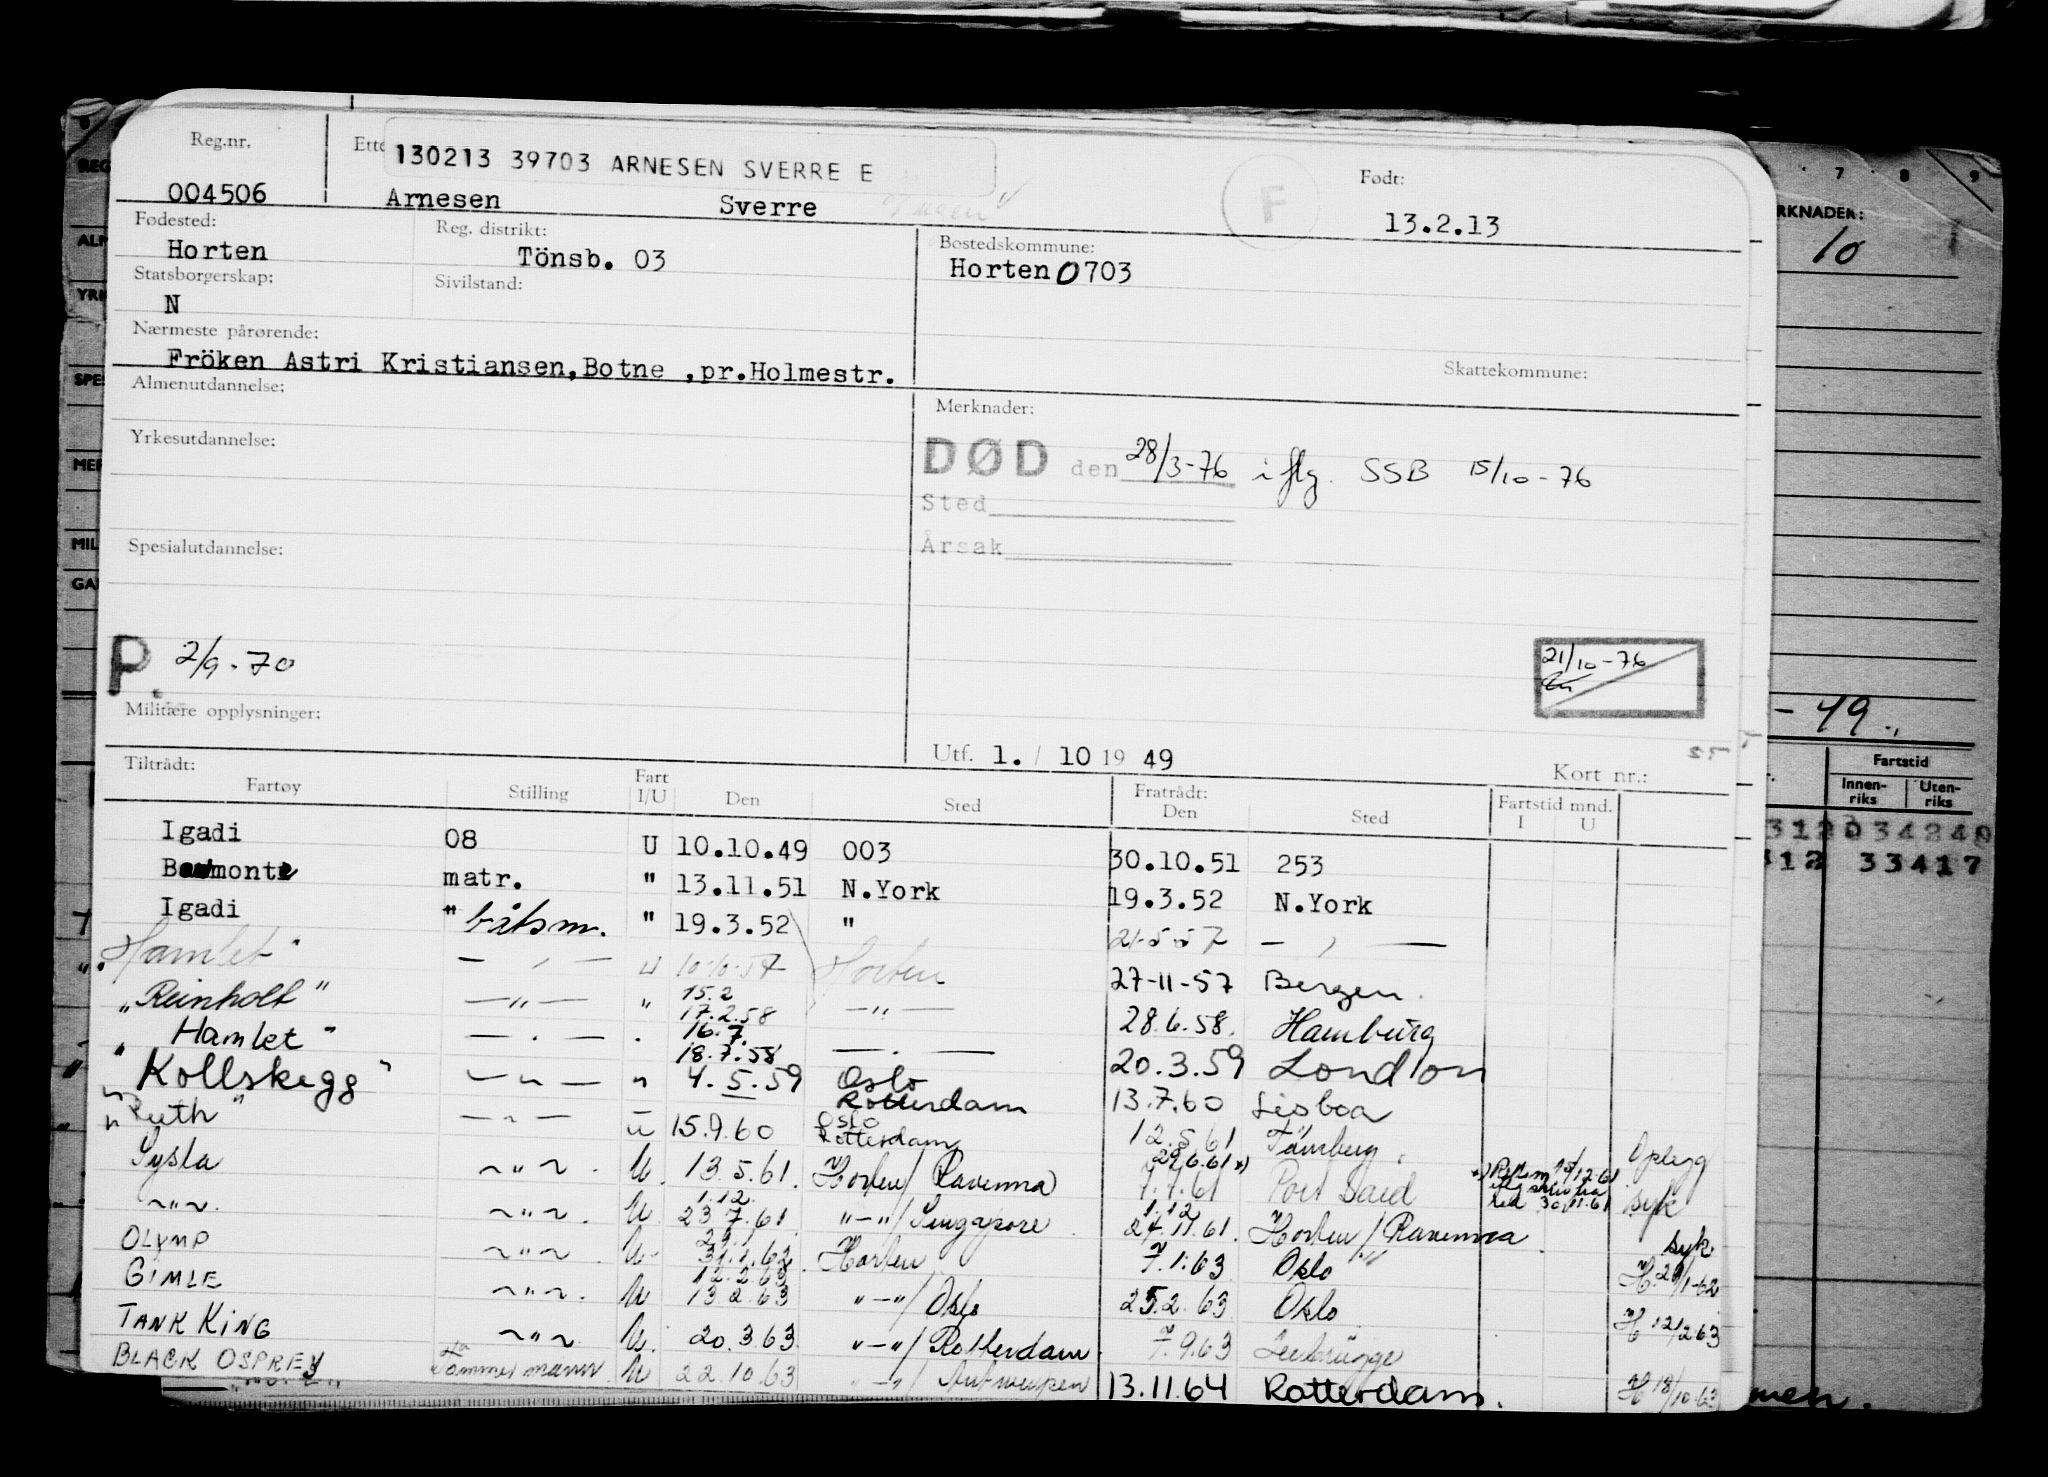 Reg.nr. Ette 130213 39703 ARNESEN SVERRE E Født:
004506 Arnesen Sverre F 13.2.13
Fødested: Reg. distrikt: Bostedskommune:
Horten Tönsb. 03 Horten 0703
Statsborgerskap: Sivilstand:
N
Nærmeste pårørende:
Fröken Astri Kristiansen,Botne ,pr.Holmestr. Skattekommune:
Almenutdannelse: Merknader:
Yrkesutdannelse: DØD den 28/3-76 iflg. SSB 15/10-76
Sted
Spesialutdannelse: Årsak
P. 2/9-70 21/10-76
Militære opplysninger:
Utf. 1. / 10 19 49
Tiltrådt: Kort nr.:
Fartøy Stilling Fart I/U Den Sted Fratrådt: Den Sted Fartstid mnd. I U
Igadi 08 U 10.10.49 003 30.10.51 253
matr. " 13.11.51 N.York 19.3.52 N.York
Igadi " båtsm. " 19.3.52 " 21-5-57 — , —
"Hamlet" — , — u 10-10-57 Horten 27-11-57 Bergen.
"Reinholt" —"— " 15.2 17.2.58 —"— 28.6.58. Hamburg
"Hamlet" — . — . 16.7. 18.7.58 — . — 20.3.59 London
"Kollskegg" —"— " 4.5.59 Oslo Rotterdam 13.7.60 Lisboa
"Ruth" —"— u 15.9.60 Oslo Rotterdam 12.5.61 Tönsberg. Oplegg
Sysla ~"~ . U. 13.5.61. Horten/Ravenna 29.6.61 *) 7.7.61 Port Said syk
~"~. ~"~ . U. 1.12 23.7.61 "-"/Singapore 1.12 27.11.61. Horten/Ravenna syk
OLYMP ~"~ . U. 31.1.62. Horten 7.1.63 Oslo H. 29/1-62
GIMLE ~"~ . U. 12.2.63 13.2.63 "-"/Oslo 25.2.63 Oslo H 12/2 63
TANK KING ~"~ U. 20.3.63 "-"/Rotterdam 7.9.63
BLACK OSPREY Tømmermann U 22.10.63 "-"/Antwerpen 13.11.64 Rotterdam. H 18/10-63
7 8 9
RKNADER:
10
- 49.
Fartstid
Innen-riks Uten-riks
312034240
312 33417
men.